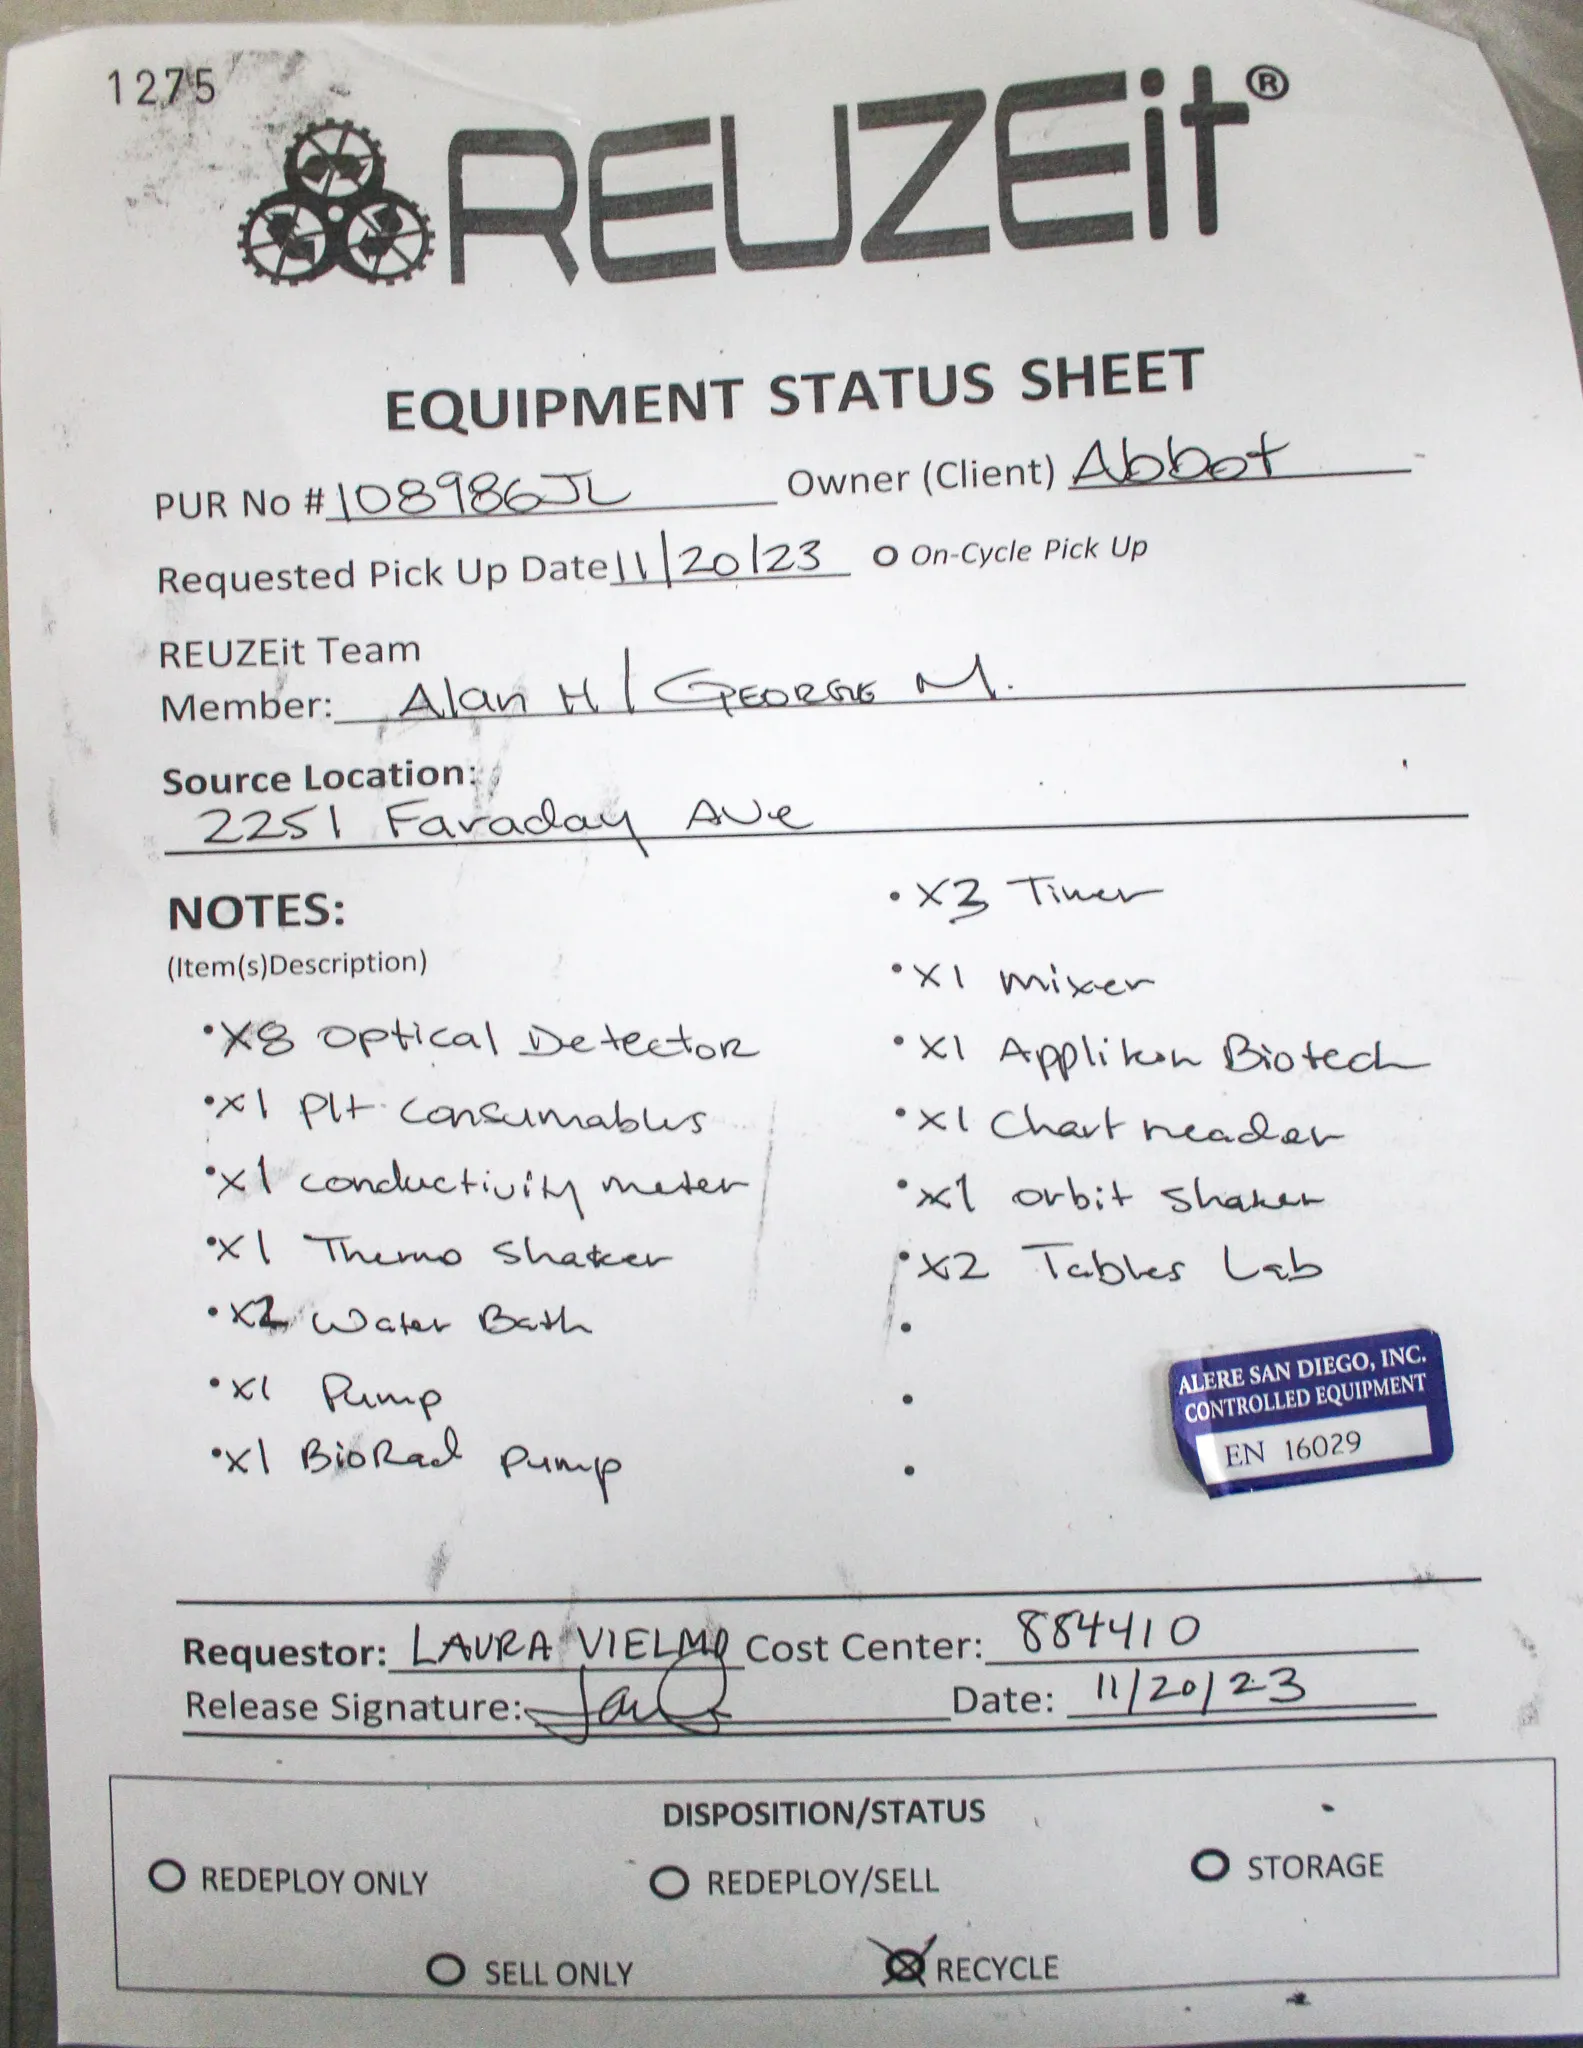 1275
REUZEit®
EQUIPMENT STATUS SHEET
PUR No # 108986JL Owner (Client) Abbot
Requested Pick Up Date 11/20/23 O On-Cycle Pick Up
REUZEit Team
Member: Alan H / GEORGE M.
Source Location:
2251 Faraday Ave
NOTES:
(Item(s)Description)
• X8 Optical Detector
• X1 Plt Consumables
• X1 conductivity meter
• X1 Thermo Shaker
• X2 Water Bath
• X1 Pump
• X1 BioRad Pump
• X3 Timer
• X1 mixer
• X1 Applikon Biotech
• X1 Chart reader
• X1 orbit Shaker
• X2 Tables Lab
•
•
•
ALERE SAN DIEGO, INC.
CONTROLLED EQUIPMENT
EN 16029
Requestor: LAURA VIELMO Cost Center: 884410
Release Signature: Date: 11/20/23
DISPOSITION/STATUS
REDEPLOY ONLY REDEPLOY/SELL STORAGE
SELL ONLY RECYCLE